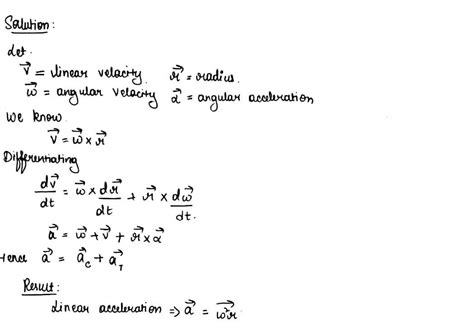 Solution:
Let.
v⃗ = linear velocity, r⃗ = radius.
w⃗ = angular velocity α⃗ = angular acceleration
We know.
v⃗ = w⃗ × r⃗
Differentiating
dv⃗/dt = w⃗ × dr⃗/dt + r⃗ × dw⃗/dt.
a⃗ = w⃗ + v⃗ + r⃗ × α⃗
Hence a⃗ = a⃗c + a⃗T
Result:
Linear acceleration ⇒ a⃗ = w²r.